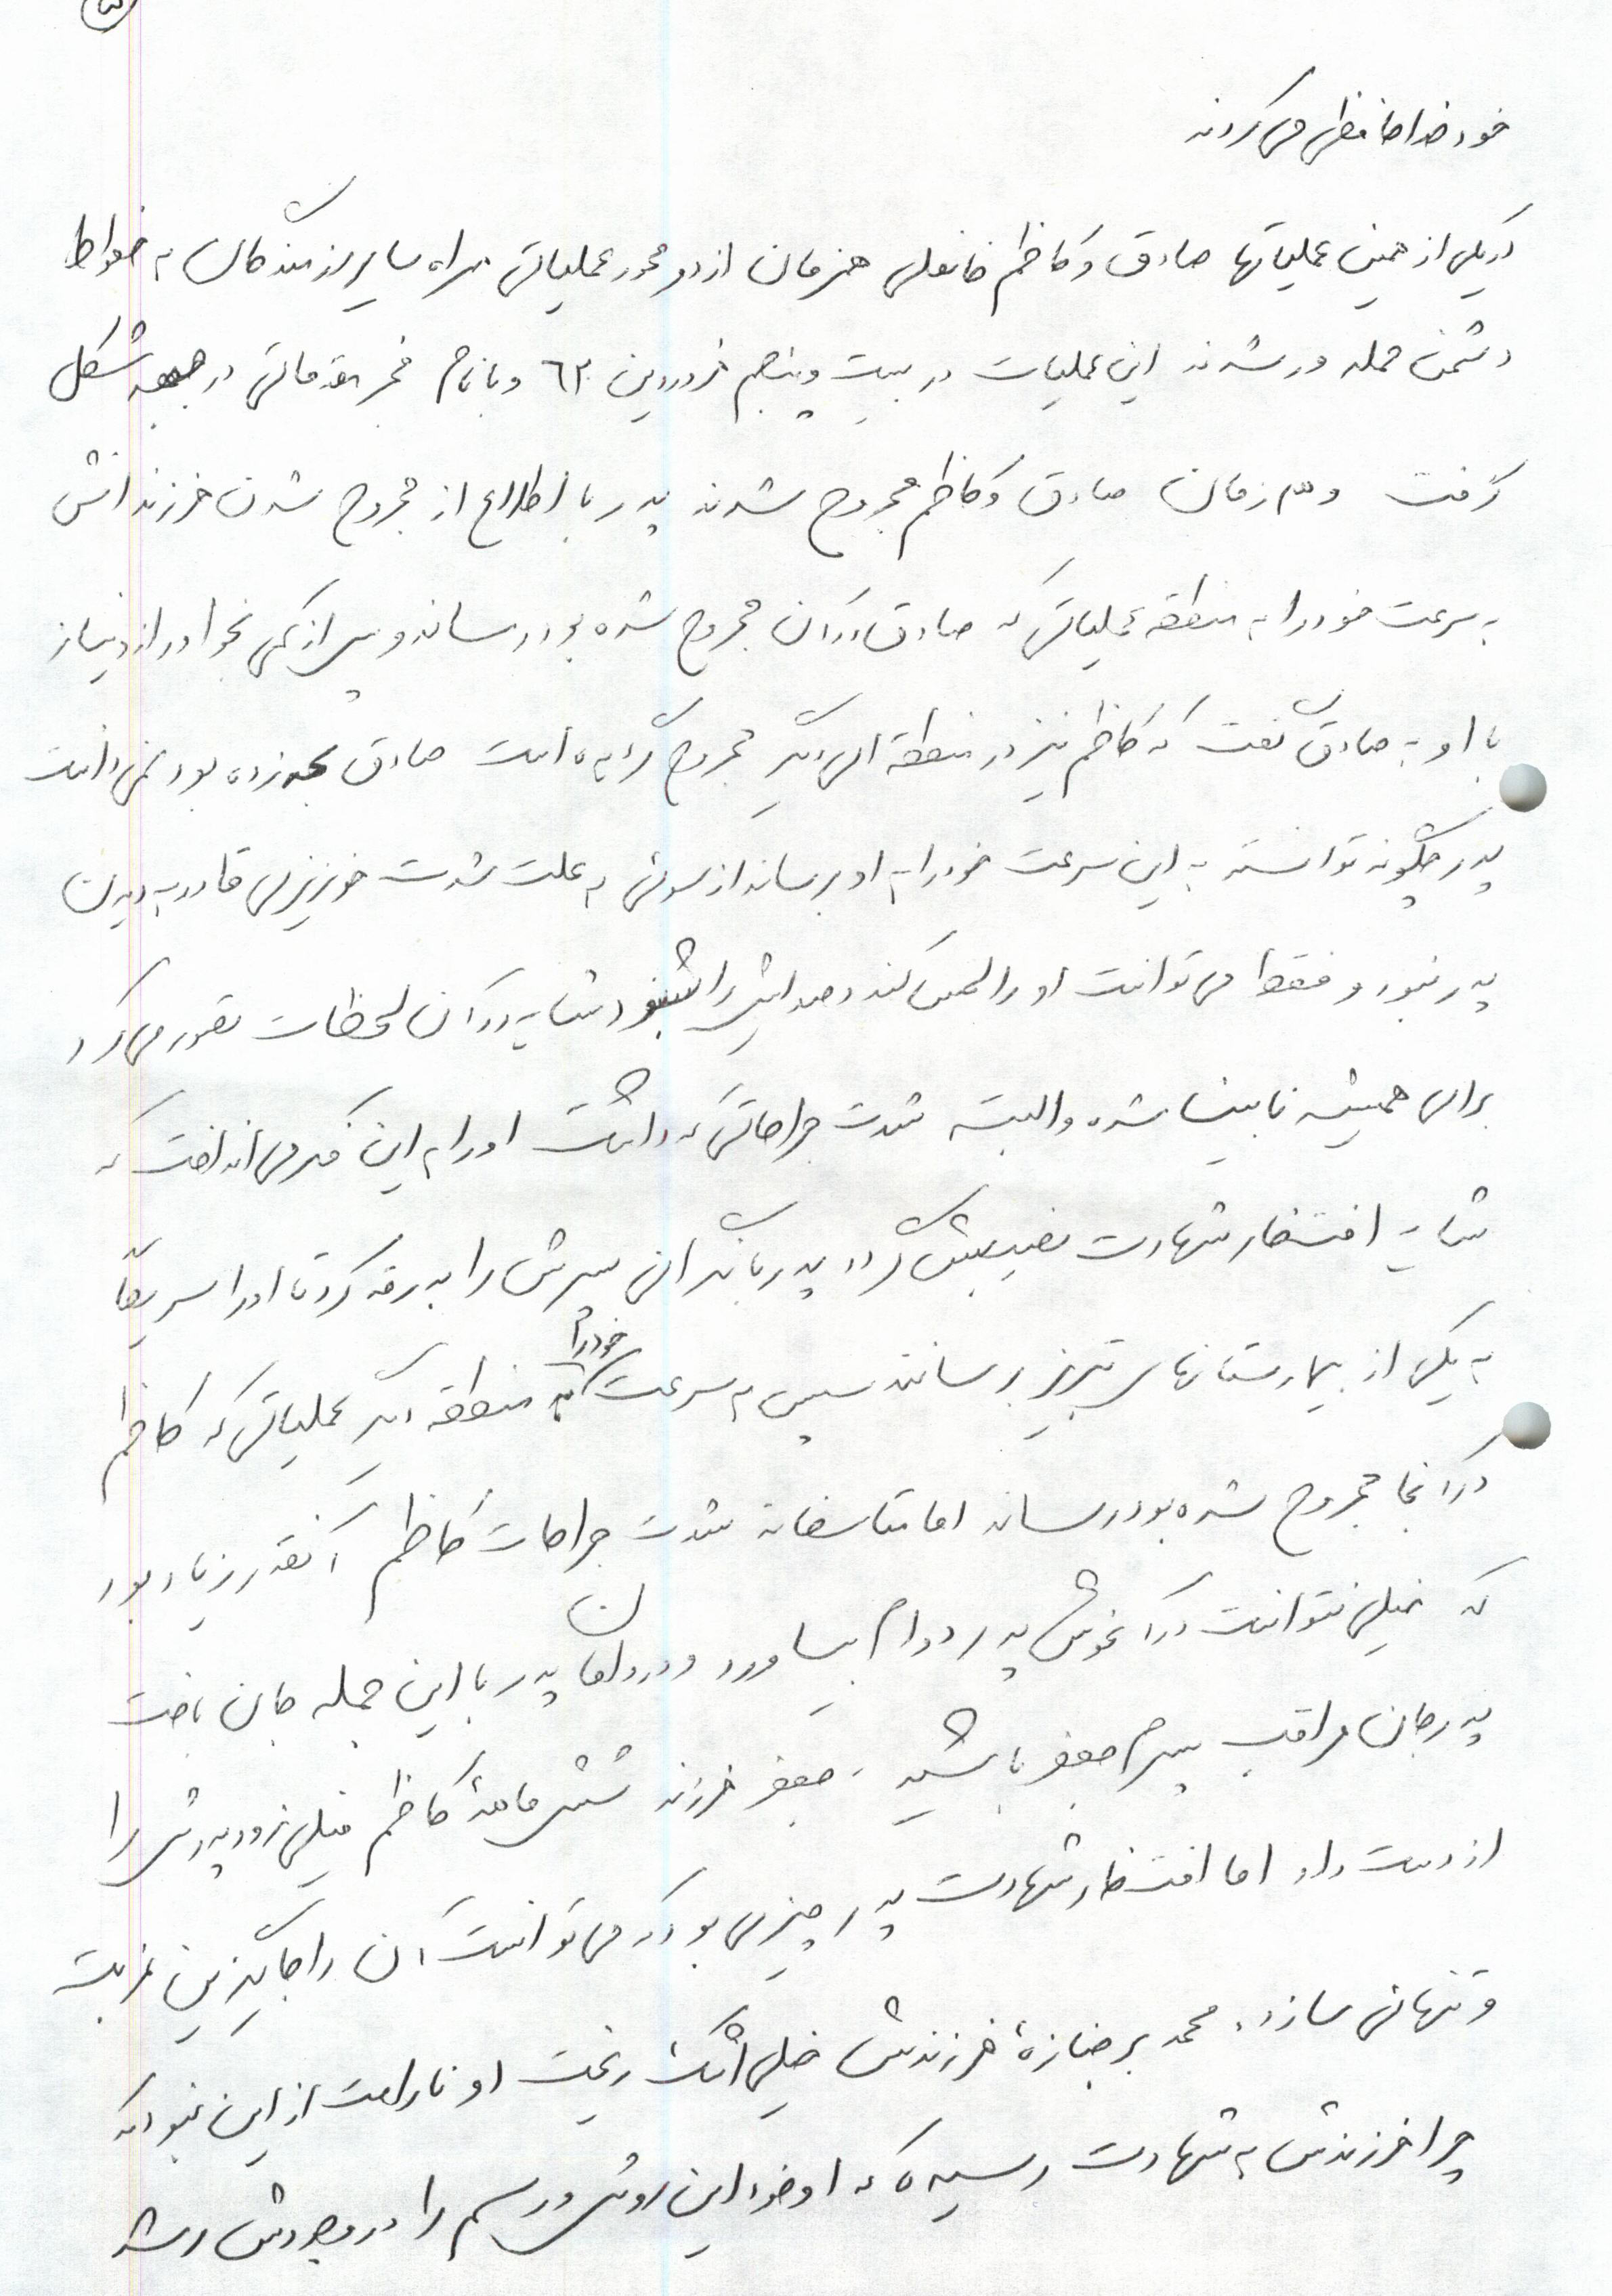 خود خداحافظی می کردند
در یکی از همین عملیاتها صادق و کاظم خانعلی همزمان از دو محور عملیاتی همراه سایر رزمندگان به خطوط
دشمن حمله ور شدند این عملیات در بیست و پنجم فروردین ٦٢ و با نام فجر مقدماتی در جبهه شکل
گرفت و هم زمان صادق و کاظم مجروح شدند پدر با اطلاع از مجروح شدن فرزندانش
به سرعت خود را به منطقه عملیاتی که صادق در آن مجروح شده بود رساند و پس از کمی نجوا و راز و نیاز
با او به صادق گفت که کاظم نیز در منطقه ای دیگر مجروح گردیده است صادق بهت زده بود نمی دانست
پدر چگونه توانسته به این سرعت خود را به او برساند از سوئی به علت شدت خونریزی قادر به دیدن
پدر نبود و فقط می توانست او را لمس کند و صدایش را بشنود شاید در آن لحظات تصور می کرد
برای همیشه نابینا شده و البته شدت جراحاتی که داشت او را به این فکر می انداخت که
شاید افتخار شهادت نصیبش گردد پدر با نگرانی پسرش را بدرقه کرد تا او را سریعاً
به یکی از بیمارستانهای تبریز برسانند سپس به سرعت خود را به منطقه دیگر عملیاتی که کاظم
در آنجا مجروح شده بود رساند اما متاسفانه شدت جراحات کاظم آنقدر زیاد بود
که خیلی نتوانست در آغوش پدر دوام بیاورد و در دامان پدر با این جمله جان باخت
پدر جان مراقب پسرم جعفر باشید . جعفر فرزند شش ماهۀ کاظم خیلی زود پدرش را
از دست داد اما افتخار شهادت پدر چیزی بود که می توانست آن را جایگزین غربت
و تنهائی سازد . محمد بر جنازۀ فرزندش خیلی اشک ریخت او ناراحت از این نبود که
چرا فرزندش به شهادت رسیده که او خود این روش و رسم را در وجودش رشد